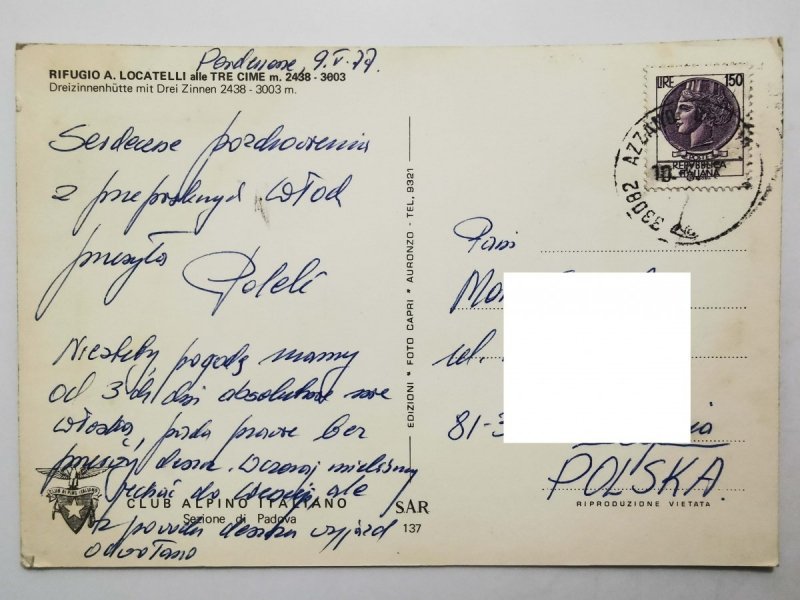 Pordenone, 9.V.77.
RIFUGIO A. LOCATELLI alle TRE CIME m. 2438 - 3003
Dreizinnenhütte mit Drei Zinnen 2438 - 3003 m.
LIRE 150
POSTE
REPVBBLICA
ITALIANA
33082 AZZANO
10
Serdeczne pozdrowienia
z przepięknych Włoch
przesyła
Niestety pogodę mamy
od 3ch dni absolutnie nie
włoską, pada prawie bez
przerwy deszcz. Wczoraj mieliśmy
jechać do Wenecji, ale
z powodu deszczu wyjazd
odwołano
EDIZIONI * FOTO CAPRI * AURONZO - TEL. 9321
Pani
ul.
81-3
POLSKA
CLUB ALPINO ITALIANO
CLUB ALPINO ITALIANO
Sezione di Padova
SAR
137
RIPRODUZIONE VIETATA